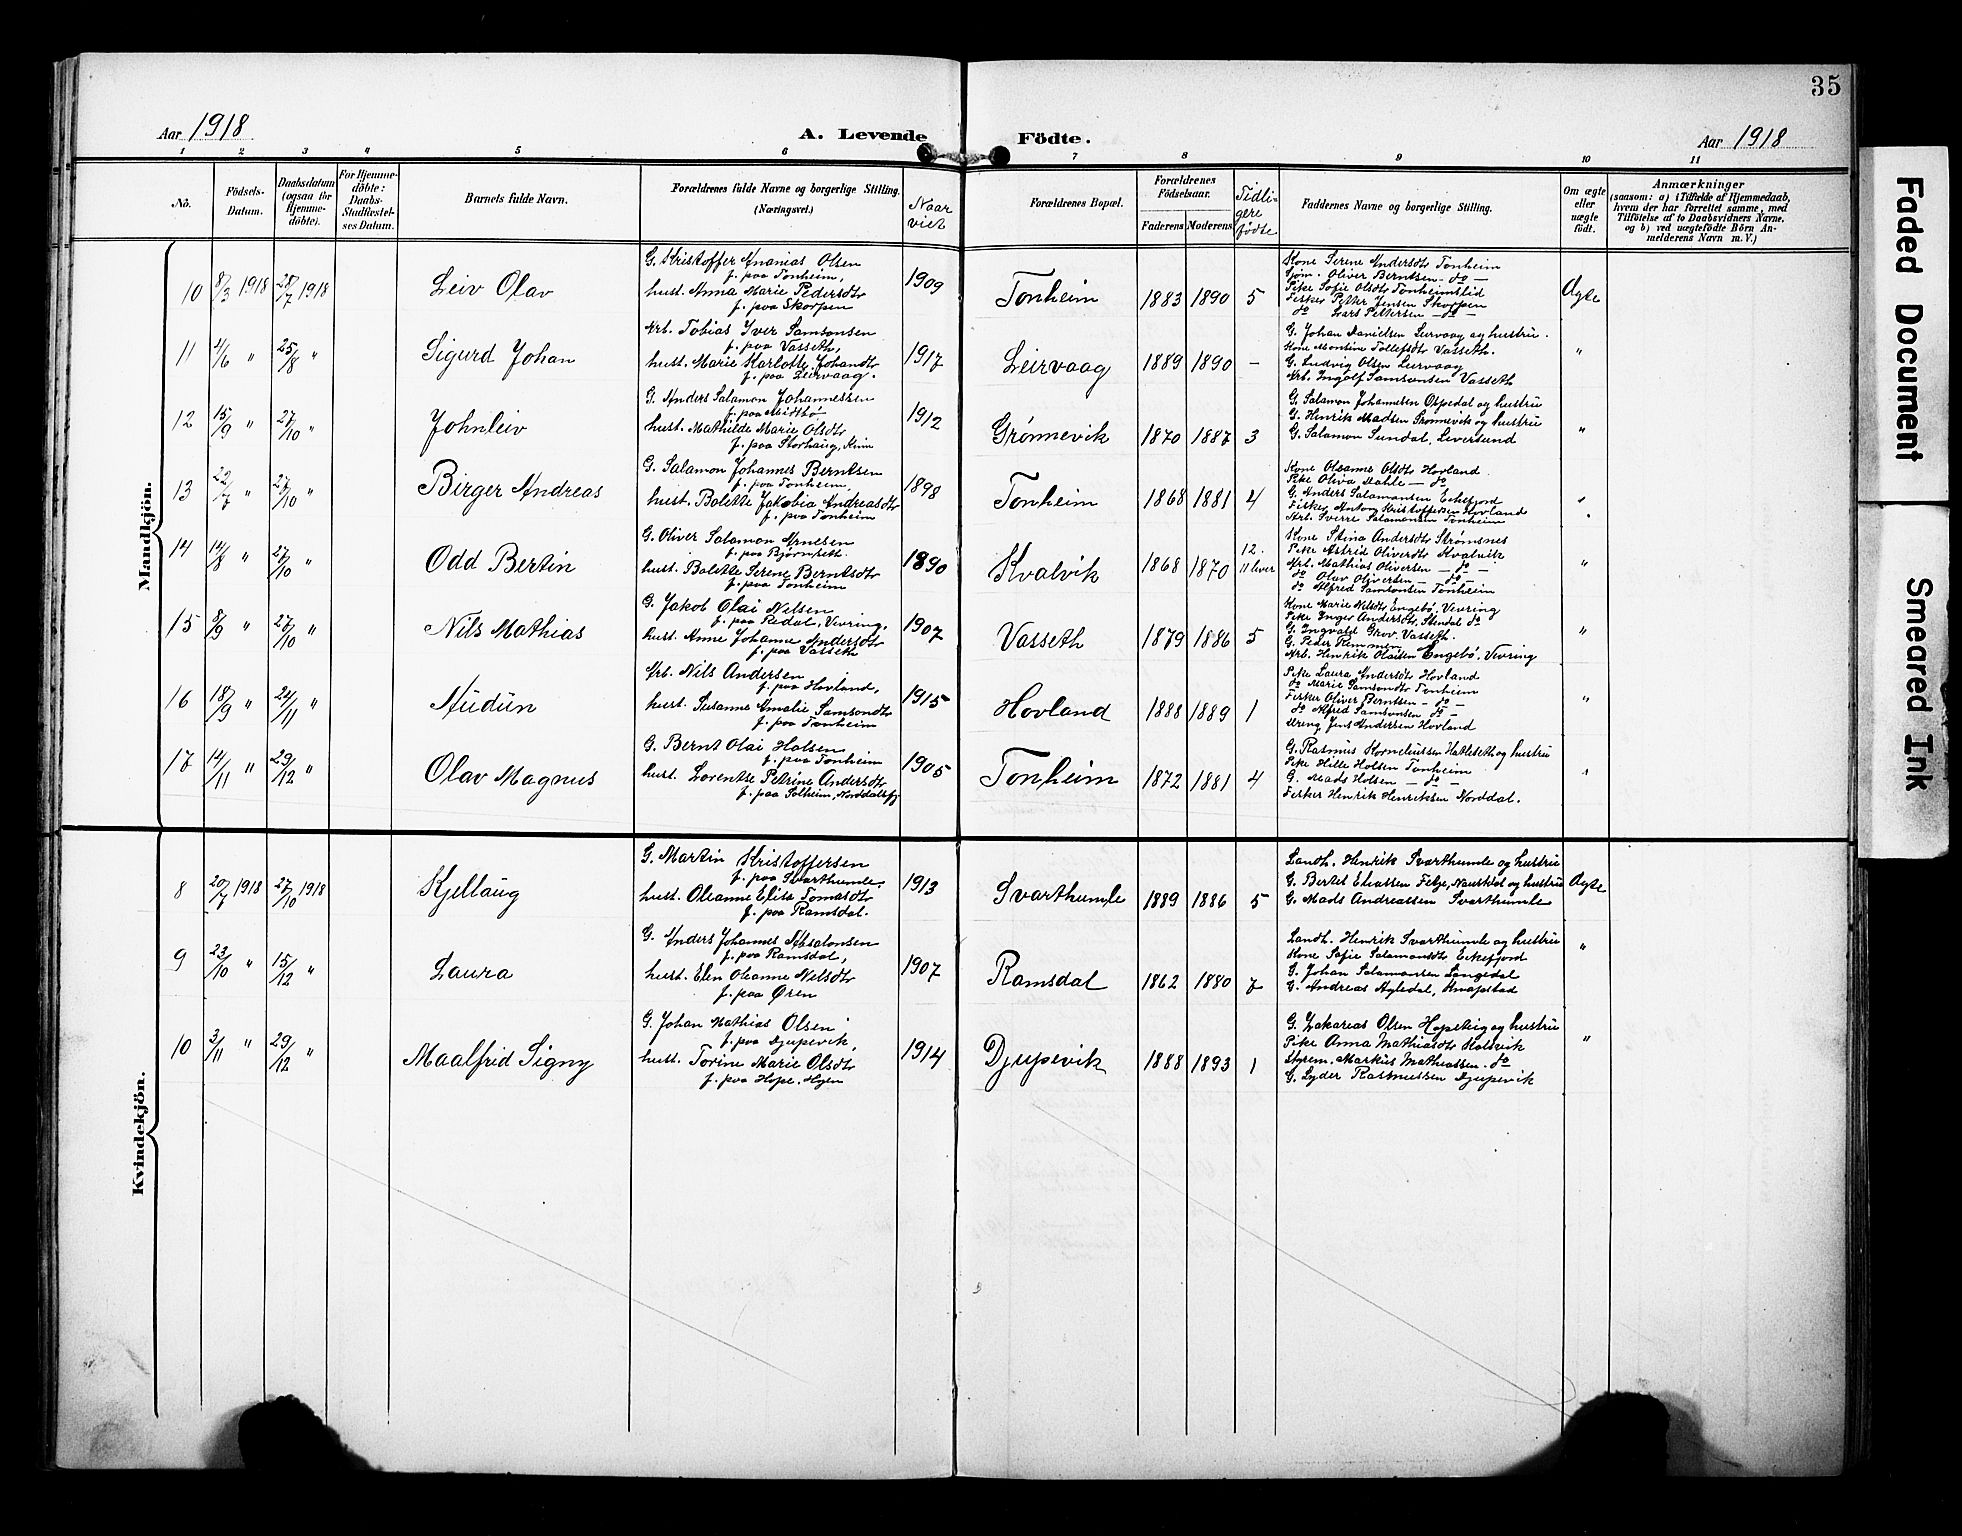 35
Aar 1918
A. Levende Födte.
Aar 1918
1 2 3 4 5 6 7 8 9 10 11
No.
Födsels-Datum.
Daabsdatum (ogsaa for Hjemme-döbte).
For Hjemme-döbte: Daabs-Stadfæstel-ses Datum.
Barnets fulde Navn.
Forældrenes fulde Navne og borgerlige Stilling. (Næringsvei.)
Naar viet
Forældrenes Bopæl.
Forældrenes Födselsaar.
Faderens Moderens
Tidligere fødte
Faddernes Navne og borgerlige Stilling.
Om ægte eller uægte födt.
Anmærkninger
(saasom: a) i Tilfælde af Hjemmedaab, hvem der har forrettet samme, med Tilföielse af to Daabsvidners Navne, og b) ved uægtefödte Börn An-melderens Navn m. V.)
Mandkjön.
10 8/3 1918 28/7 1918 Leiv Olav
G. Kristoffer Ananias Olsen
f. paa Tonheim,
hust. Anna Marie Pedersdtr
f. paa Skorpen
1909 Tonheim 1883 1890 5
Kone Serene Andersdtr Tonheim
Sjøm. Oliver Berntsen - do -
Pike Sofie Olsdtr Tonheimslid
Fisker Petter Jensen Skorpen
do Lars Pettersen - do -
Ægte
11 4/6 " 25/8 " Sigurd Johan
Arb. Tobias Iver Samsonsen
f. paa Vasseth,
hust. Marie Karlotte Johandtr
f. paa Leirvaag.
1917 Leirvaag 1889 1890 -
G. Johan Danielsen Leirvaag og hustru.
Kone Montine Tollefsdtr Vasseth.
G. Ludvig Olsen Leirvaag
Arb. Ingolf Samsonsen Vasseth
"
12 15/9 " 27/10 " Johnleiv
G. Anders Salamon Johannessen
f. paa Midtbø
hust. Mathilde Marie Olsdtr
f. paa Storhaug, Kinn
1912 Grønnevik 1870 1887 3
G. Salamon Johannesen Ospedal og hustru
G. Henrik Madsen Grønnevik og hustru
G. Salamon Sundal, Leversund
"
13 22/7 " 27/10 " Birger Andreas
G. Salamon Johannes Berntsen
f. paa Tonheim,
hust. Bolette Jakobia Andreasdtr
f. paa Tonheim
1898 Tonheim 1868 1881 4
Kone Oleanne Olsdtr Hovland
Pike Oliva Dahle - do
G. Anders Salamonsen Eikefjord
Fisker Anton Kristoffersen Hovland
Arb. Sverre Salamonsen Tonheim
"
14 14/8 " 27/10 " Odd Bertin
G. Oliver Salamon Arnesen
f. paa Bjørnseth.
hust. Bolette Serene Berntsdtr
f. paa Tonheim
1890 Kvalvik 1868 1870 12. 11 lever
Kone Stina Andersdtr Strømsnes
Pike Astrid Oliversdtr Kvalvik
Arb. Mathias Oliversen - do -
do Olav Oliversen - do -
do Alfred Samsonsen Tonheim
"
15 8/9 " 27/10 " Nils Mathias
G. Jakob Olai Nilsen
f. paa Redal, Vevring,
hust. Anne Johanne Andersdtr
f. paa Vasseth
1907 Vasseth 1879 1886 5
Kone Marie Nilsdtr Engebø, Vevring
Pike Inger Andersdtr, Stendal do
G. Ingvald Grov, Vasseth.
G. Peder Remmen
Arb. Henrik Olaisen Engebø, Vevring
"
16 18/9 " 24/11 " Audun
Arb. Nils Andersen
f. paa Hovland,
hust. Susanne Amalie Samsondtr
f. paa Tonheim
1915 Hovland 1888 1889 1
Pike Laura Andersdtr Hovland
do Marie Samsondtr Tonheim
Fisker Oliver Berntsen - do -
do Alfred Samsonsen do -
Dreng Jens Andersen Hovland
"
17 14/11 " 29/12 " Olav Magnus
G. Bernt Olai Holsen
f. paa Tonheim
hust. Lorentse Petrine Andersdtr
f. paa Solheim, Norddalsfj.
1905 Tonheim 1872 1881 4
G. Rasmus Korneliussen Hatleseth og hustru
Pike Hille Holsen Tonheim
G. Mads Holsen - do -
Fisker Henrik Henriksen Norddal.
"
Kvindekjön.
8 20/7 1918 27/10 1918 Kjellaug
G. Martin Kristoffersen
f. paa Svarthumle.
hust. Oleanne Elisa Tomasdtr
f. paa Ramsdal.
1913 Svarthumle 1889 1886 5
Landh. Henrik Svarthumle og hustru
G. Bertel Eliassen Felge, Naustdal og hustru
G. Mads Andreassen Svarthumle
Ægte
9 23/10 " 15/12 " Laura
G. Anders Johannes Absalonsen
f. paa Ramsdal,
hust. Elen Oleanne Nilsdtr
f. paa Øren
1907 Ramsdal 1862 1880 7
Landh. Henrik Svarthumle og hustru
Kone Sofie Salamonsdtr Eikefjord
G. Johan Salamonsen Langedal
G. Andreas Agledal, Knapstad
"
10 3/11 " 29/12 " Maalfrid Signy
G. Johan Mathias Olsen
f. paa Djupevik,
hust. Torine Marie Olsdtr
f. paa Hope, Hyen
1914 Djupevik 1888 1893 1
G. Zakarias Olsen Hopsteig og hustru
Pike Anna Mathiasdtr Kolsvik
Styrem. Markus Mathiassen. do
G. Lyder Rasmussen Djupevik
"
Faded Document
Smeared Ink